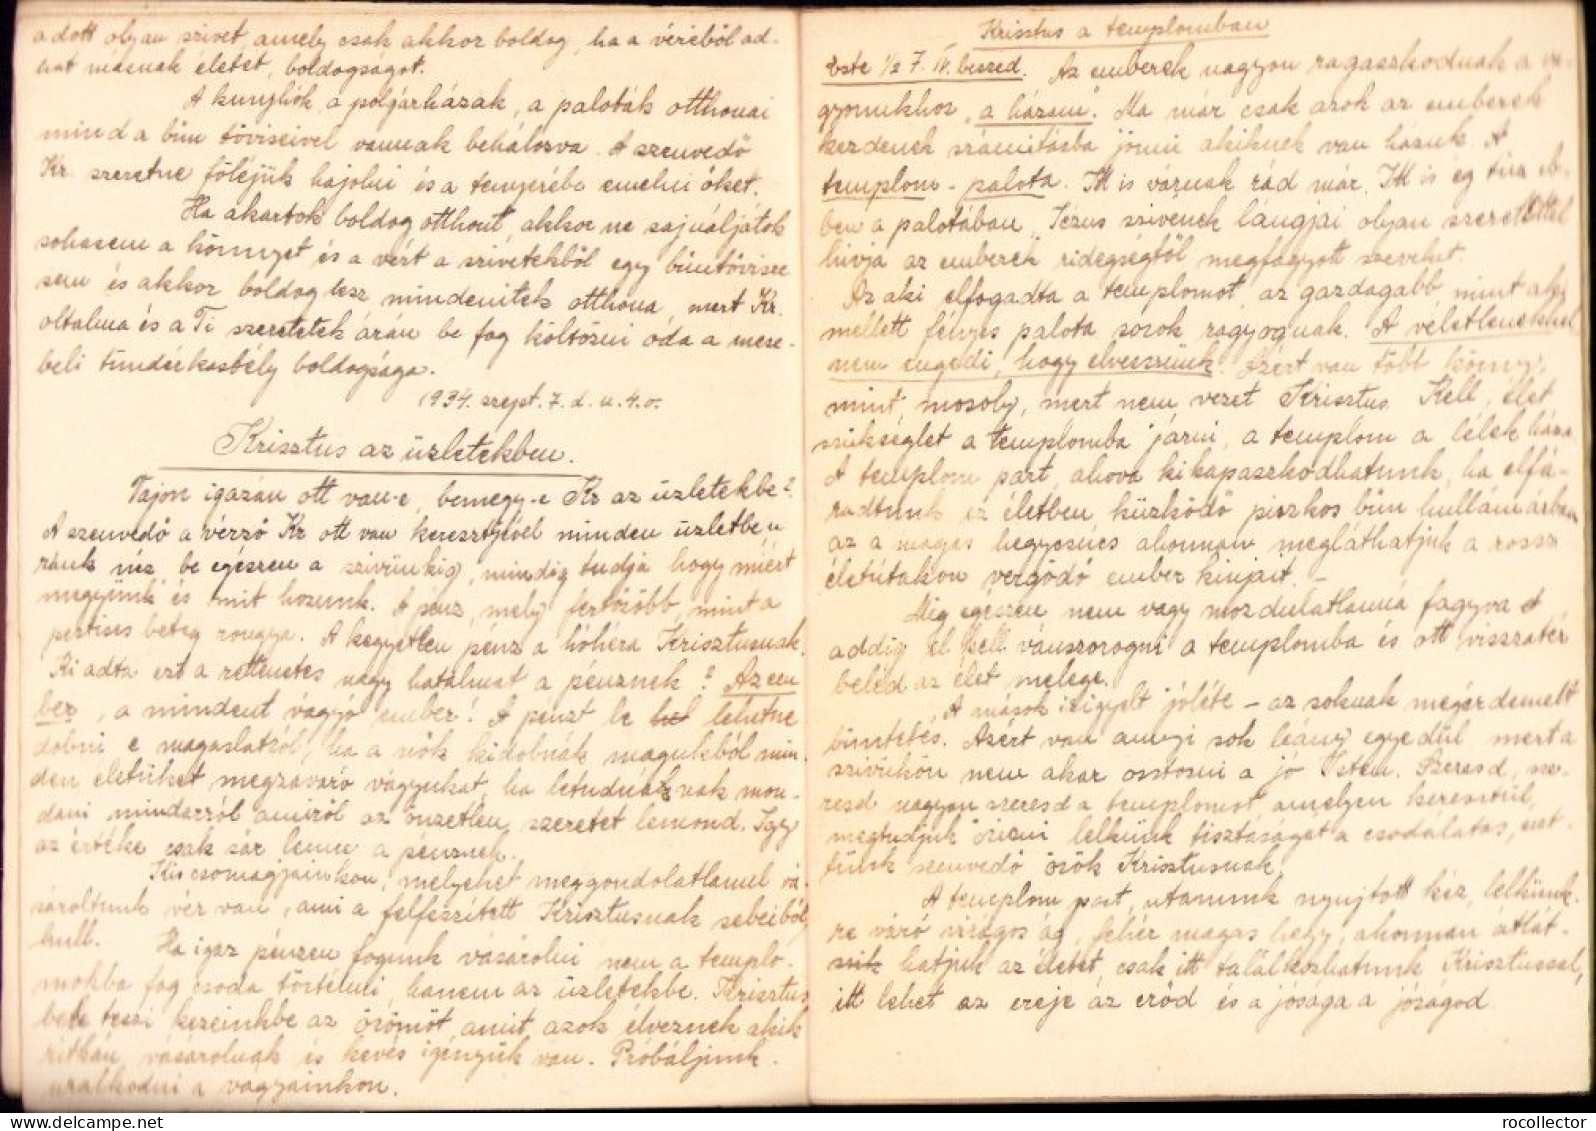 adott olyan szivet, amely csak akkor boldog, ha a véréből ad-
hat másnak életet, boldogságot.
A kunyhók a polgárházak, a paloták otthonai
mind a bün töviseivel vannak behálózva. A szenvedő
Kr. szeretne föléjük hajolni és a tenyerébe emelni őket.
Ha akartok boldog otthont, akkor ne sajnáljátok
sohasem a könnyet és a vért a szivetekből egy büntövisre
sem és akkor boldog lesz mindenitek otthona, mert Kr.
oltalma és a Ti szeretetek árán be fog költözni oda a mese-
beli tündérkastély boldogsága.
1934. szept. 7. d. u. 4. o.
Krisztus az üzletekben.
Vajon igazán ott van-e, bemegy-e Kr az üzletekbe?
A szenvedő a vérző Kr ott van keresztjével minden üzletben
ránk néz be egészen a szivünkig, mindig tudja hogy miért
megyünk és mit hozunk. A pénz, mely fertőzőbb mint a
pestises beteg rongya. A kegyetlen pénz a hóhéra Krisztusnak.
Ki adta ezt a rettenetes nagy hatalmat a pénznek? Az em
ber, a mindent vágyó ember! A pénzt le lehetne
dobni e magaslatról, ha a nők kidobnák magukból min
den életüket megzavaró vágyukat, ha le tudnának mon-
dani mindarról amiről az önzetlen szeretet lemond. Igy
az értéke csak sár lenne a pénznek.
Kis csomagjainkon, melyeket meggondolatlanul vá-
sároltunk vér van, ami a felfeszitett Krisztusnak sebeiből
hull.
Ha igaz pénzen fogunk vásárolni nem a templo-
mokba fog csoda történni, hanem az üzletekbe. Krisztus
bele teszi kezeinkbe az örömöt, amit azok élveznek akik
ritkán vásárolnak és kevés igényük van. Próbáljunk
uralkodni a vágyainkon.
Krisztus a templomban
Este 1/2 7. IV. beszéd. Az emberek nagyon ragaszkodnak a
"a házam". Ma már csak azok az emberek
kezdenek számitásba jönni akiknek van házuk. A
templom - palota. Itt is várnak rád már. Itt is ég tüz eb-
ben a palotában, Jézus szivének lángjai olyan szeretettel
hivja az emberek ridegségtől megfagyott sziveket.
Az aki elfogadta a templomot, az gazdagabb, mint aki
mellett fényes palota sorok ragyognak. A véletleneknek
nem engedi, hogy elvesszünk. Azért van több könny,
mint mosoly, mert nem vezet Krisztus. Kell, élet
szükséglet a templomba járni, a templom a lélek háza
A templom part, ahova kikapaszkodhatunk, ha elfá-
radtunk az életben küzködő piszkos bün hullámaiban
az a magas hegycsúcs ahonnan megláthatjuk a rossz
életútakon vergődő ember kinjait. -
Mig egészen nem vagy mozdulatlanná fagyva
addig el kell vánszorogni a templomba és ott visszatér
beléd az élet melege.
A mások irigyelt jóléte - az soknak megérdemelt
büntetés. Azért van annyi sok leány egyedül mert a
szivükön nem akar osztozni a jó Isten. Szeresd, sze-
resd nagyon szeresd a templomot, amelyen keresztül,
megtudjuk őrizni lelkünk tisztaságát a csodálatos, ért-
tünk szenvedő örök Krisztusnak.
A templom part, utánunk nyujtott kéz, lelkünk-
re váró virágos ág, fehér magas hegy, ahonnan átlát-
hatjuk az életet, csak itt találkozhatunk Krisztussal,
itt lehet az ereje az erőd és a jósága a jóságod.
rocollector